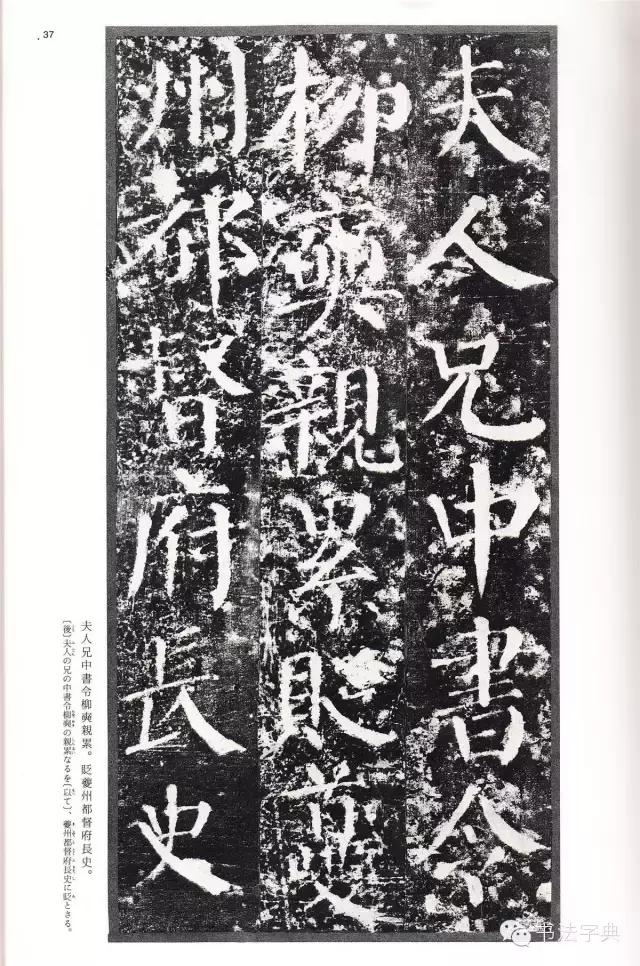 37
夫人兄中書令
柳奭親累貶夔
州都督府長史
夫人兄中書令柳奭親累。貶夔州都督府長史。
〔後〕夫人の兄の中書令柳奭の親累なるを〔以て〕、夔州都督府長史に貶とさる。
书法字典